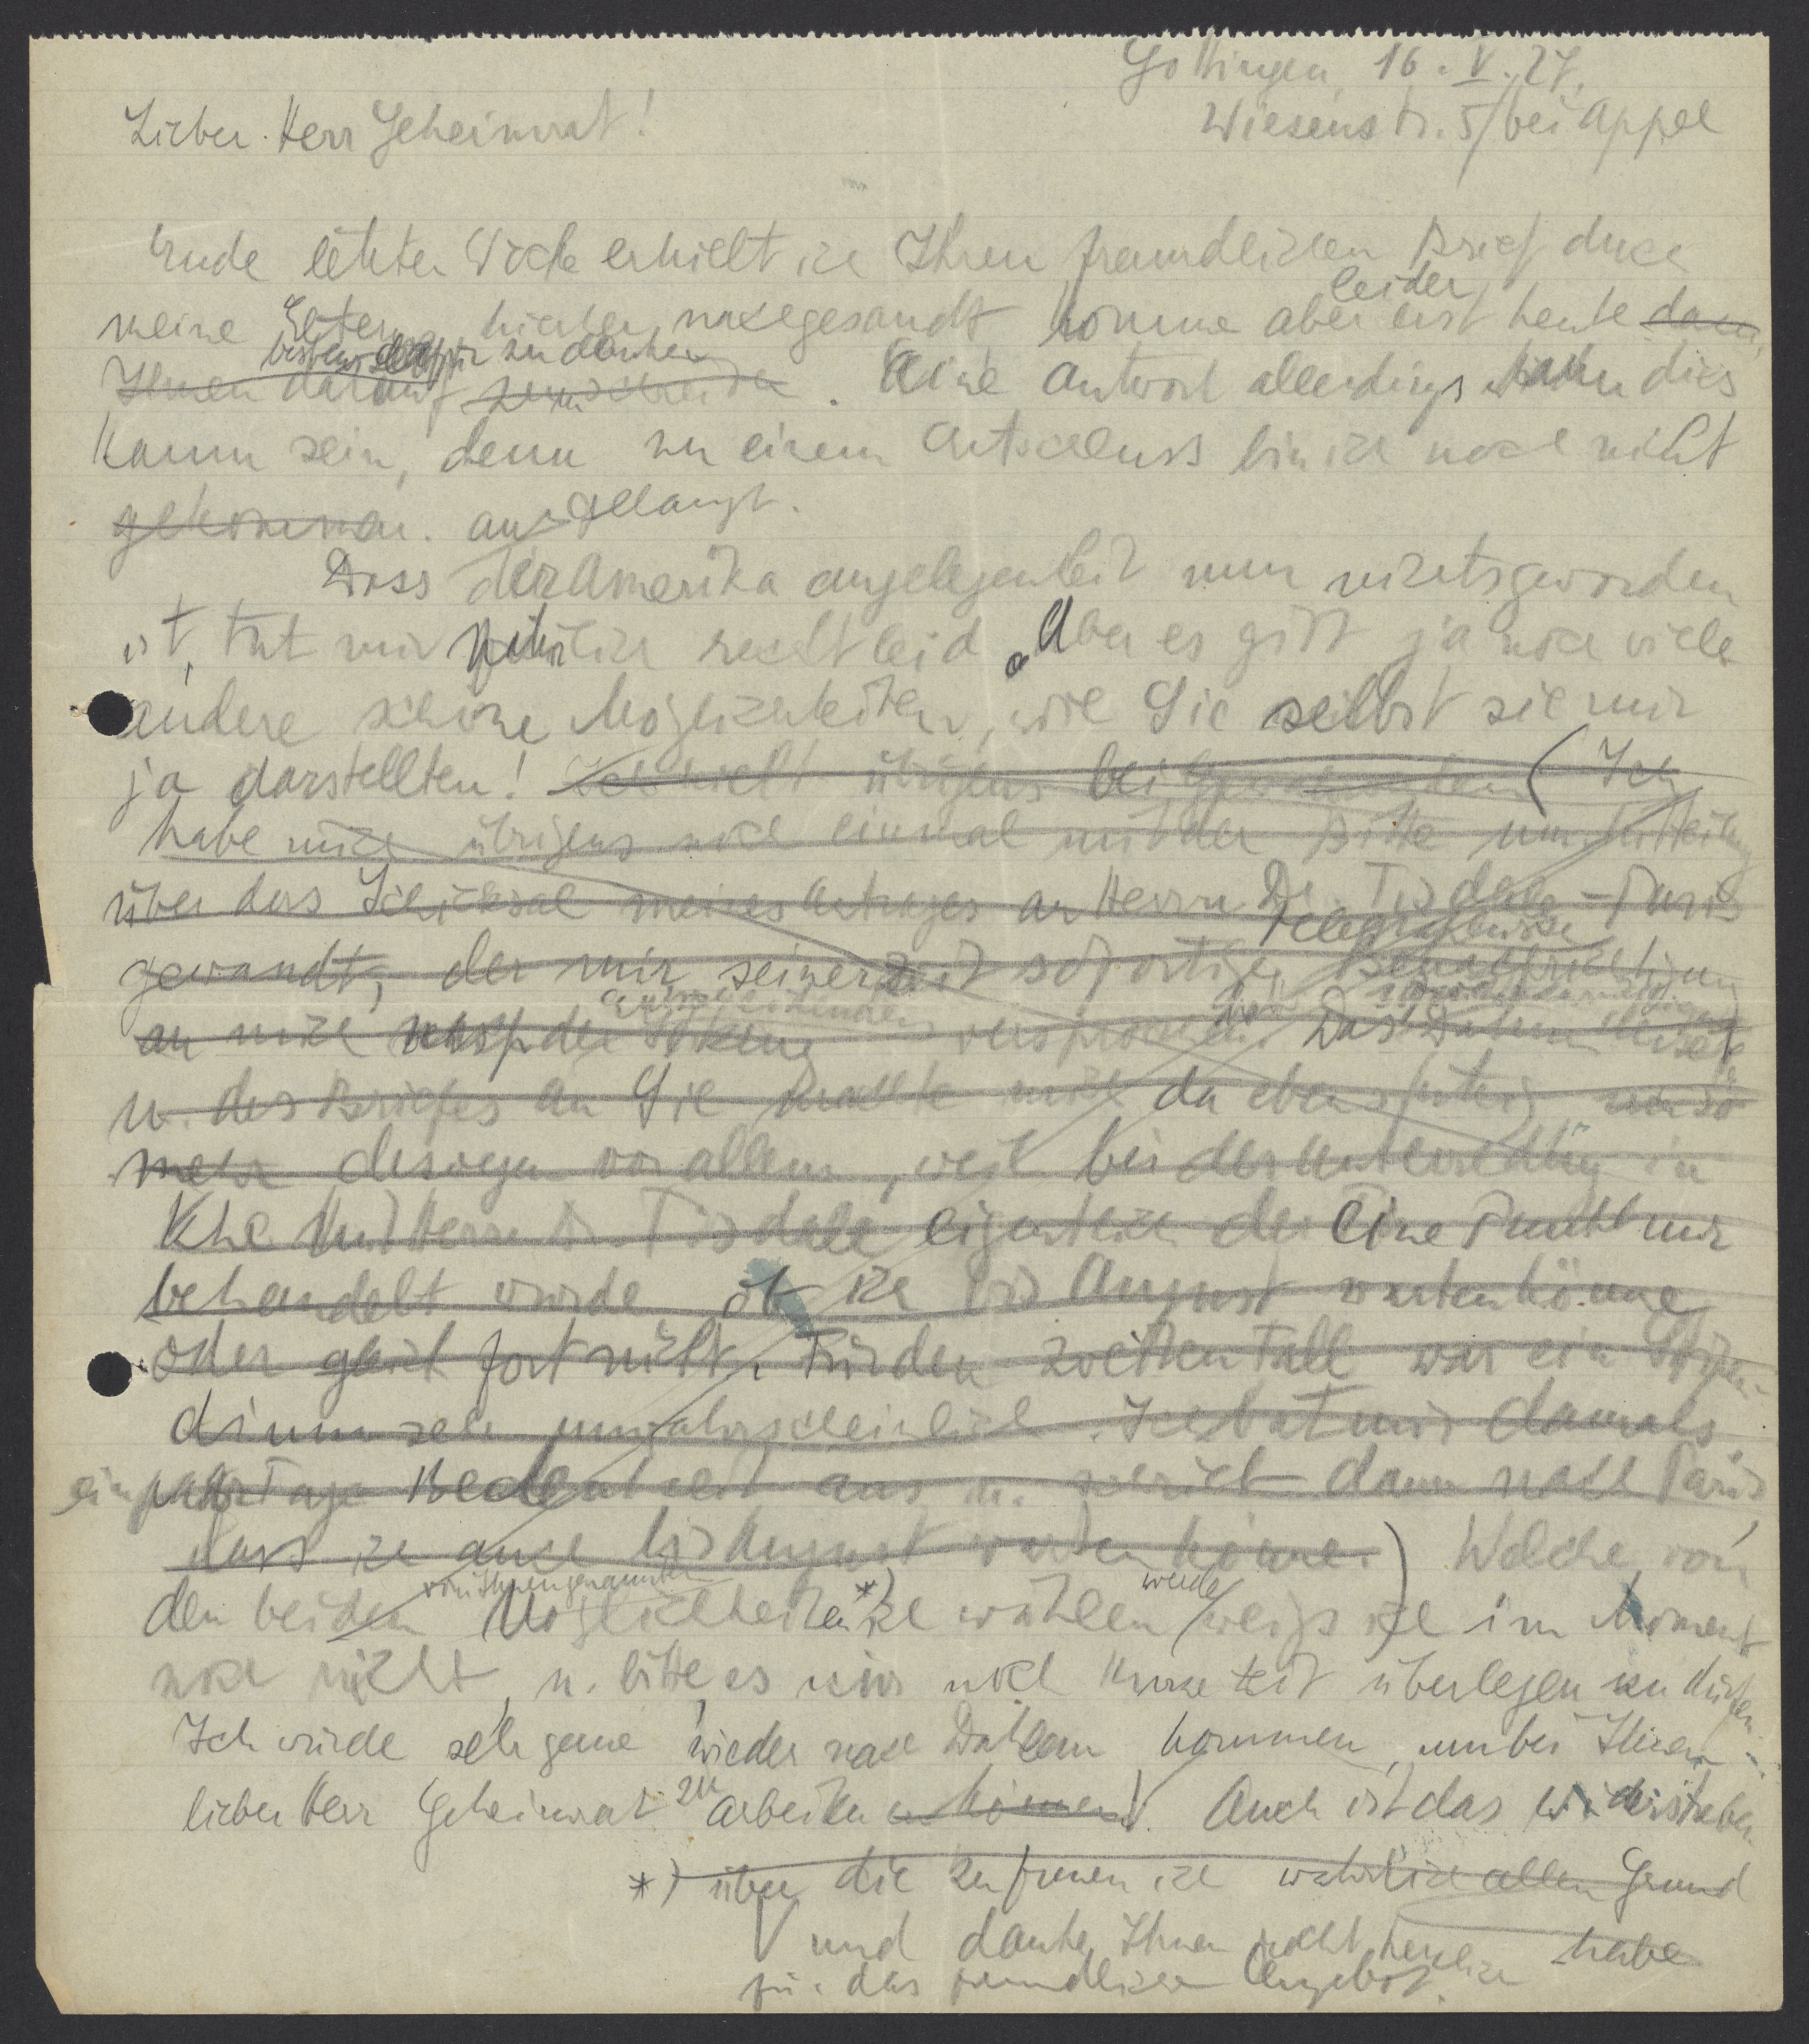 Göttingen, 16. V. 27.
Wiesenstr. 5/ bei Appel
Lieber Herr Geheimrat!
Ende letzter Woche erhielt ich Ihren freundlichen Brief durch
leider
meine Eltern hierher nachgesandt komme aber erst heute dazu,
bestens dafür zu danken
Ihnen darauf zu schreiben. Eine Antwort allerdings dies
kaum sein, denn zu einem Entschluss bin ich noch nicht
gekommen. angelangt.
Dass der Amerika angelegenheit nun nichts geworden
ist, tut mir natürlich recht leid. Aber es gibt ja noch viele
andere schöne Möglichkeiten, wie Sie selbst sie mir
ja darstellten! Ich übrigens bei (Ich
habe mich übrigens noch einmal mit der Bitte um Mitteilung
über das Schicksal meines Antrages an Herrn Dr. Tisdale - Paris
telegraphische
gewandt, der mir seinerzeit sofortige Benachrichtigung
an mich resp. der versprochen. Das Datum
u. des Briefes an Sie machte mich da eben stutzig, umso
mehr deswegen vor allem, weil bei der Unterredung in
Khe mit Herrn Dr. Tisdale eigentlich der eine Punkt nur
behandelt wurde ob ich bis August warten könne
oder gleich fort müsste. Für den zweiten Fall war ein Stipen-
dium sehr unwahrscheinlich. Ich bat mir damals
ein paar Tage Bedenkzeit aus u. schrieb dann nach Paris,
dass ich auch bis August warten könne.) Welche von
von Ihnen genannten werde
den beiden Möglichkeiten *) ich wählen weiss ich im Moment
noch nicht, u. bitte es mir noch kurze Zeit überlegen zu dürfen.
Ich würde sehr gerne wieder nach Dahlem kommen, um bei Ihnen,
lieber Herr Geheimrat zu arbeiten können. Auch ist das
*) über die zu freuen ich wahrlich allen Grund
habe
und danke Ihnen recht herzlich
für das freundliche Angebot.